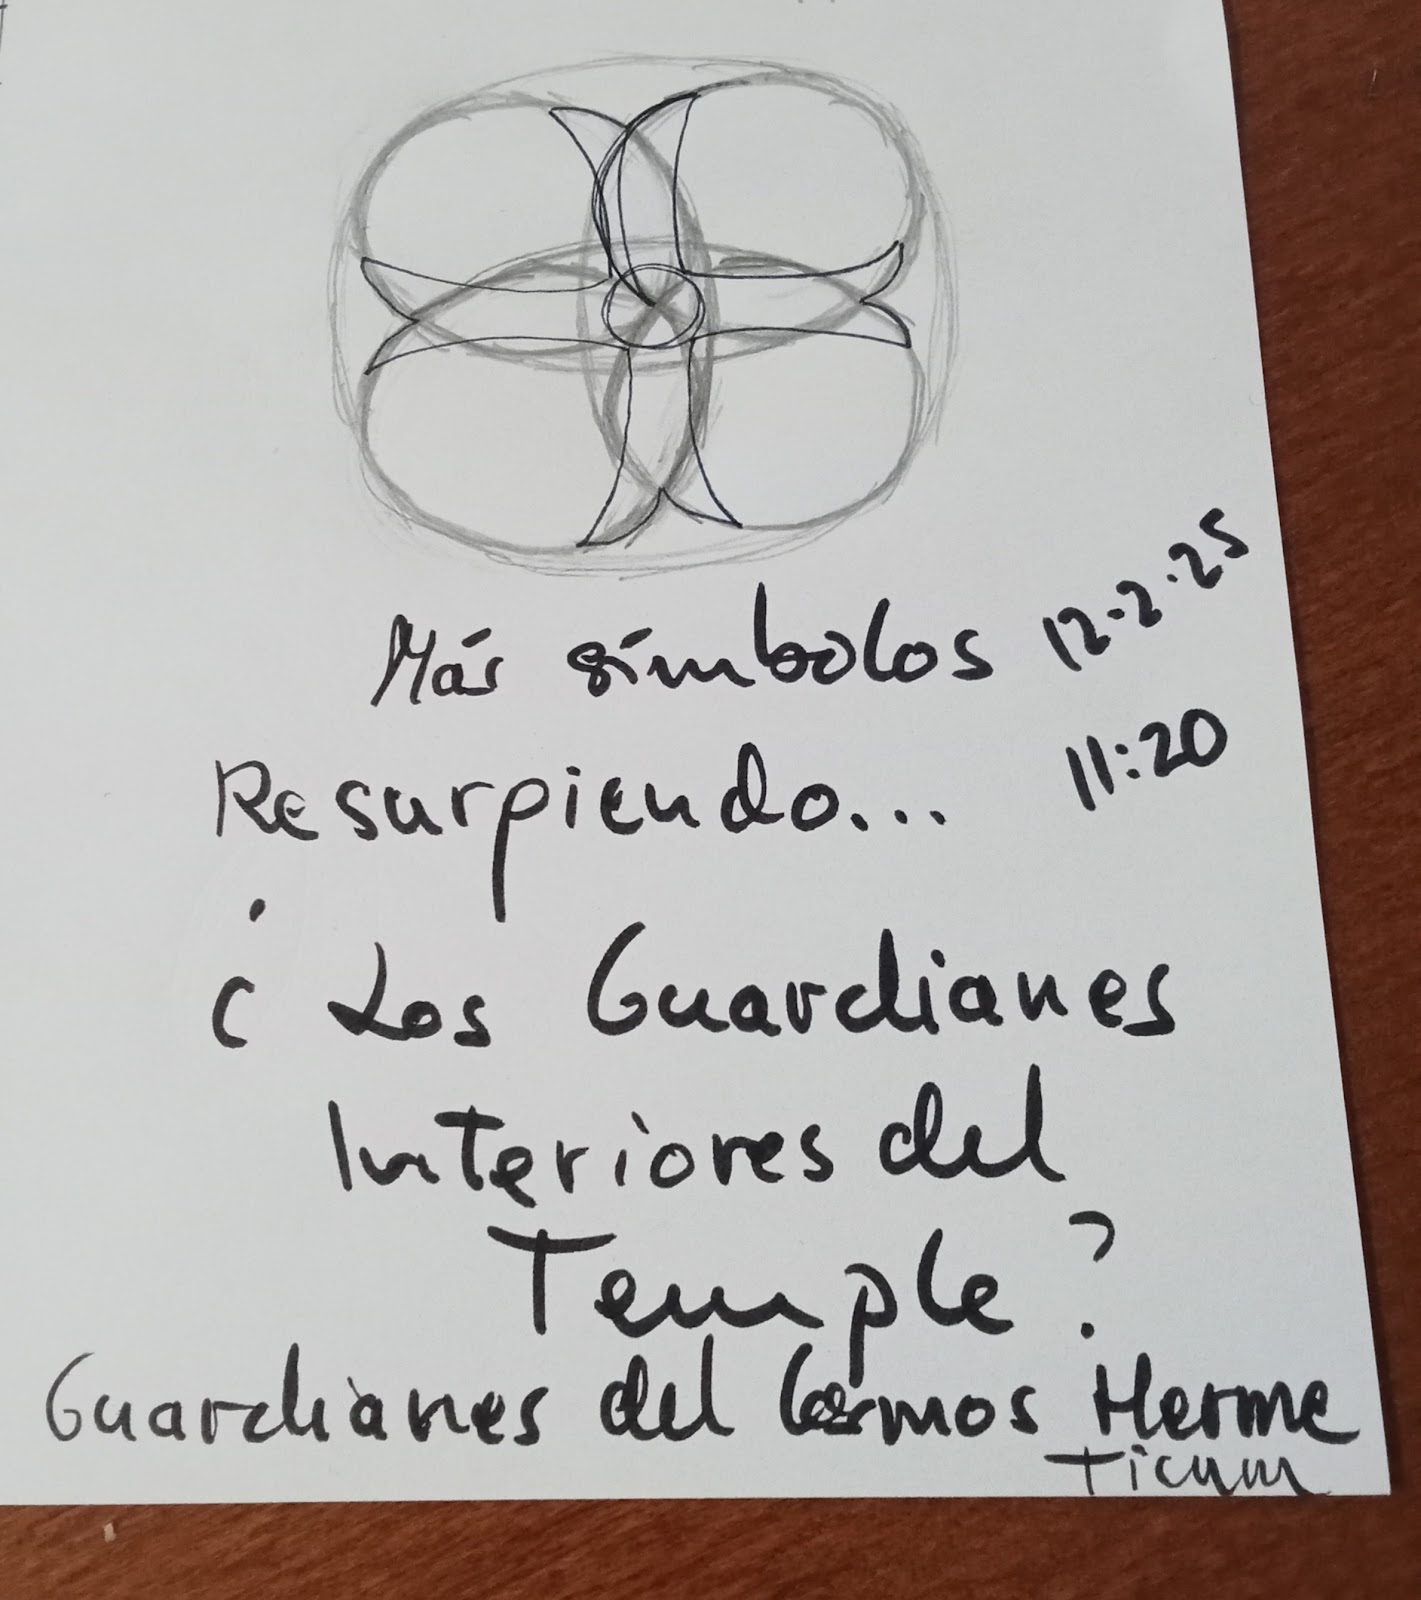 Más símbolos 12-2-25
Resurpiendo... 11:20
¿Los Guardianes
Interiores del
Temple?
Guardianes del Cosmos Herme
Ticum